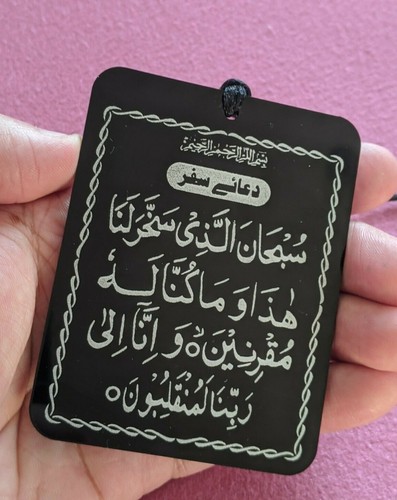 بسم الله الرحمن الرحيم
دعائے سفر
سُبْحَانَ الَّذِىْ سَخَّرَ لَنَا
هٰذَا وَ مَا كُنَّا لَهٗ
مُقْرِنِيْنَ۝ وَ اِنَّآ اِلٰى
رَبِّنَا لَمُنْقَلِبُوْنَ۝